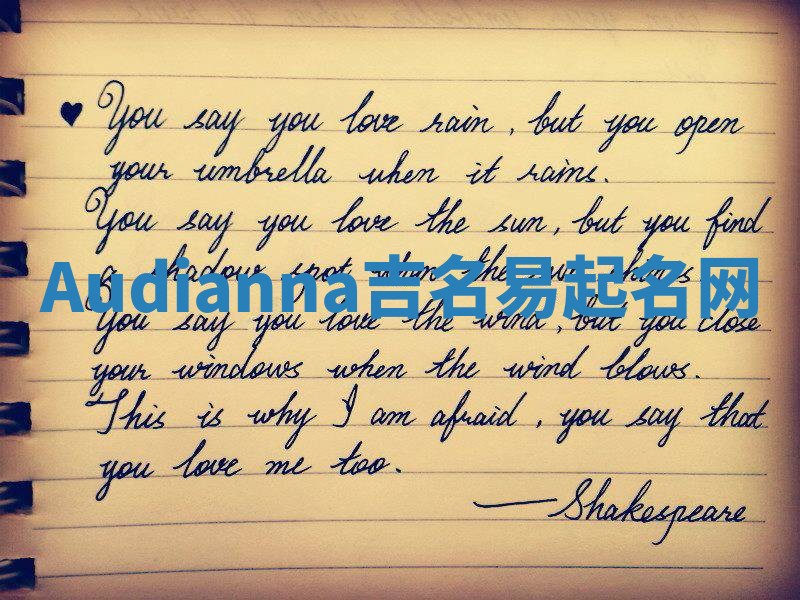 ♥ You say you love rain, but you open
your umbrella when it rains.
You say you love the sun, but you find
a shadow spot when the sun shines
Audianna吉名易起名网
You say you love the wind, but you close
your windows when the wind blows.
This is why I am afraid, you say that
you love me too.
— Shakespeare